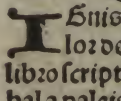 I Gnis
lor de
libro script